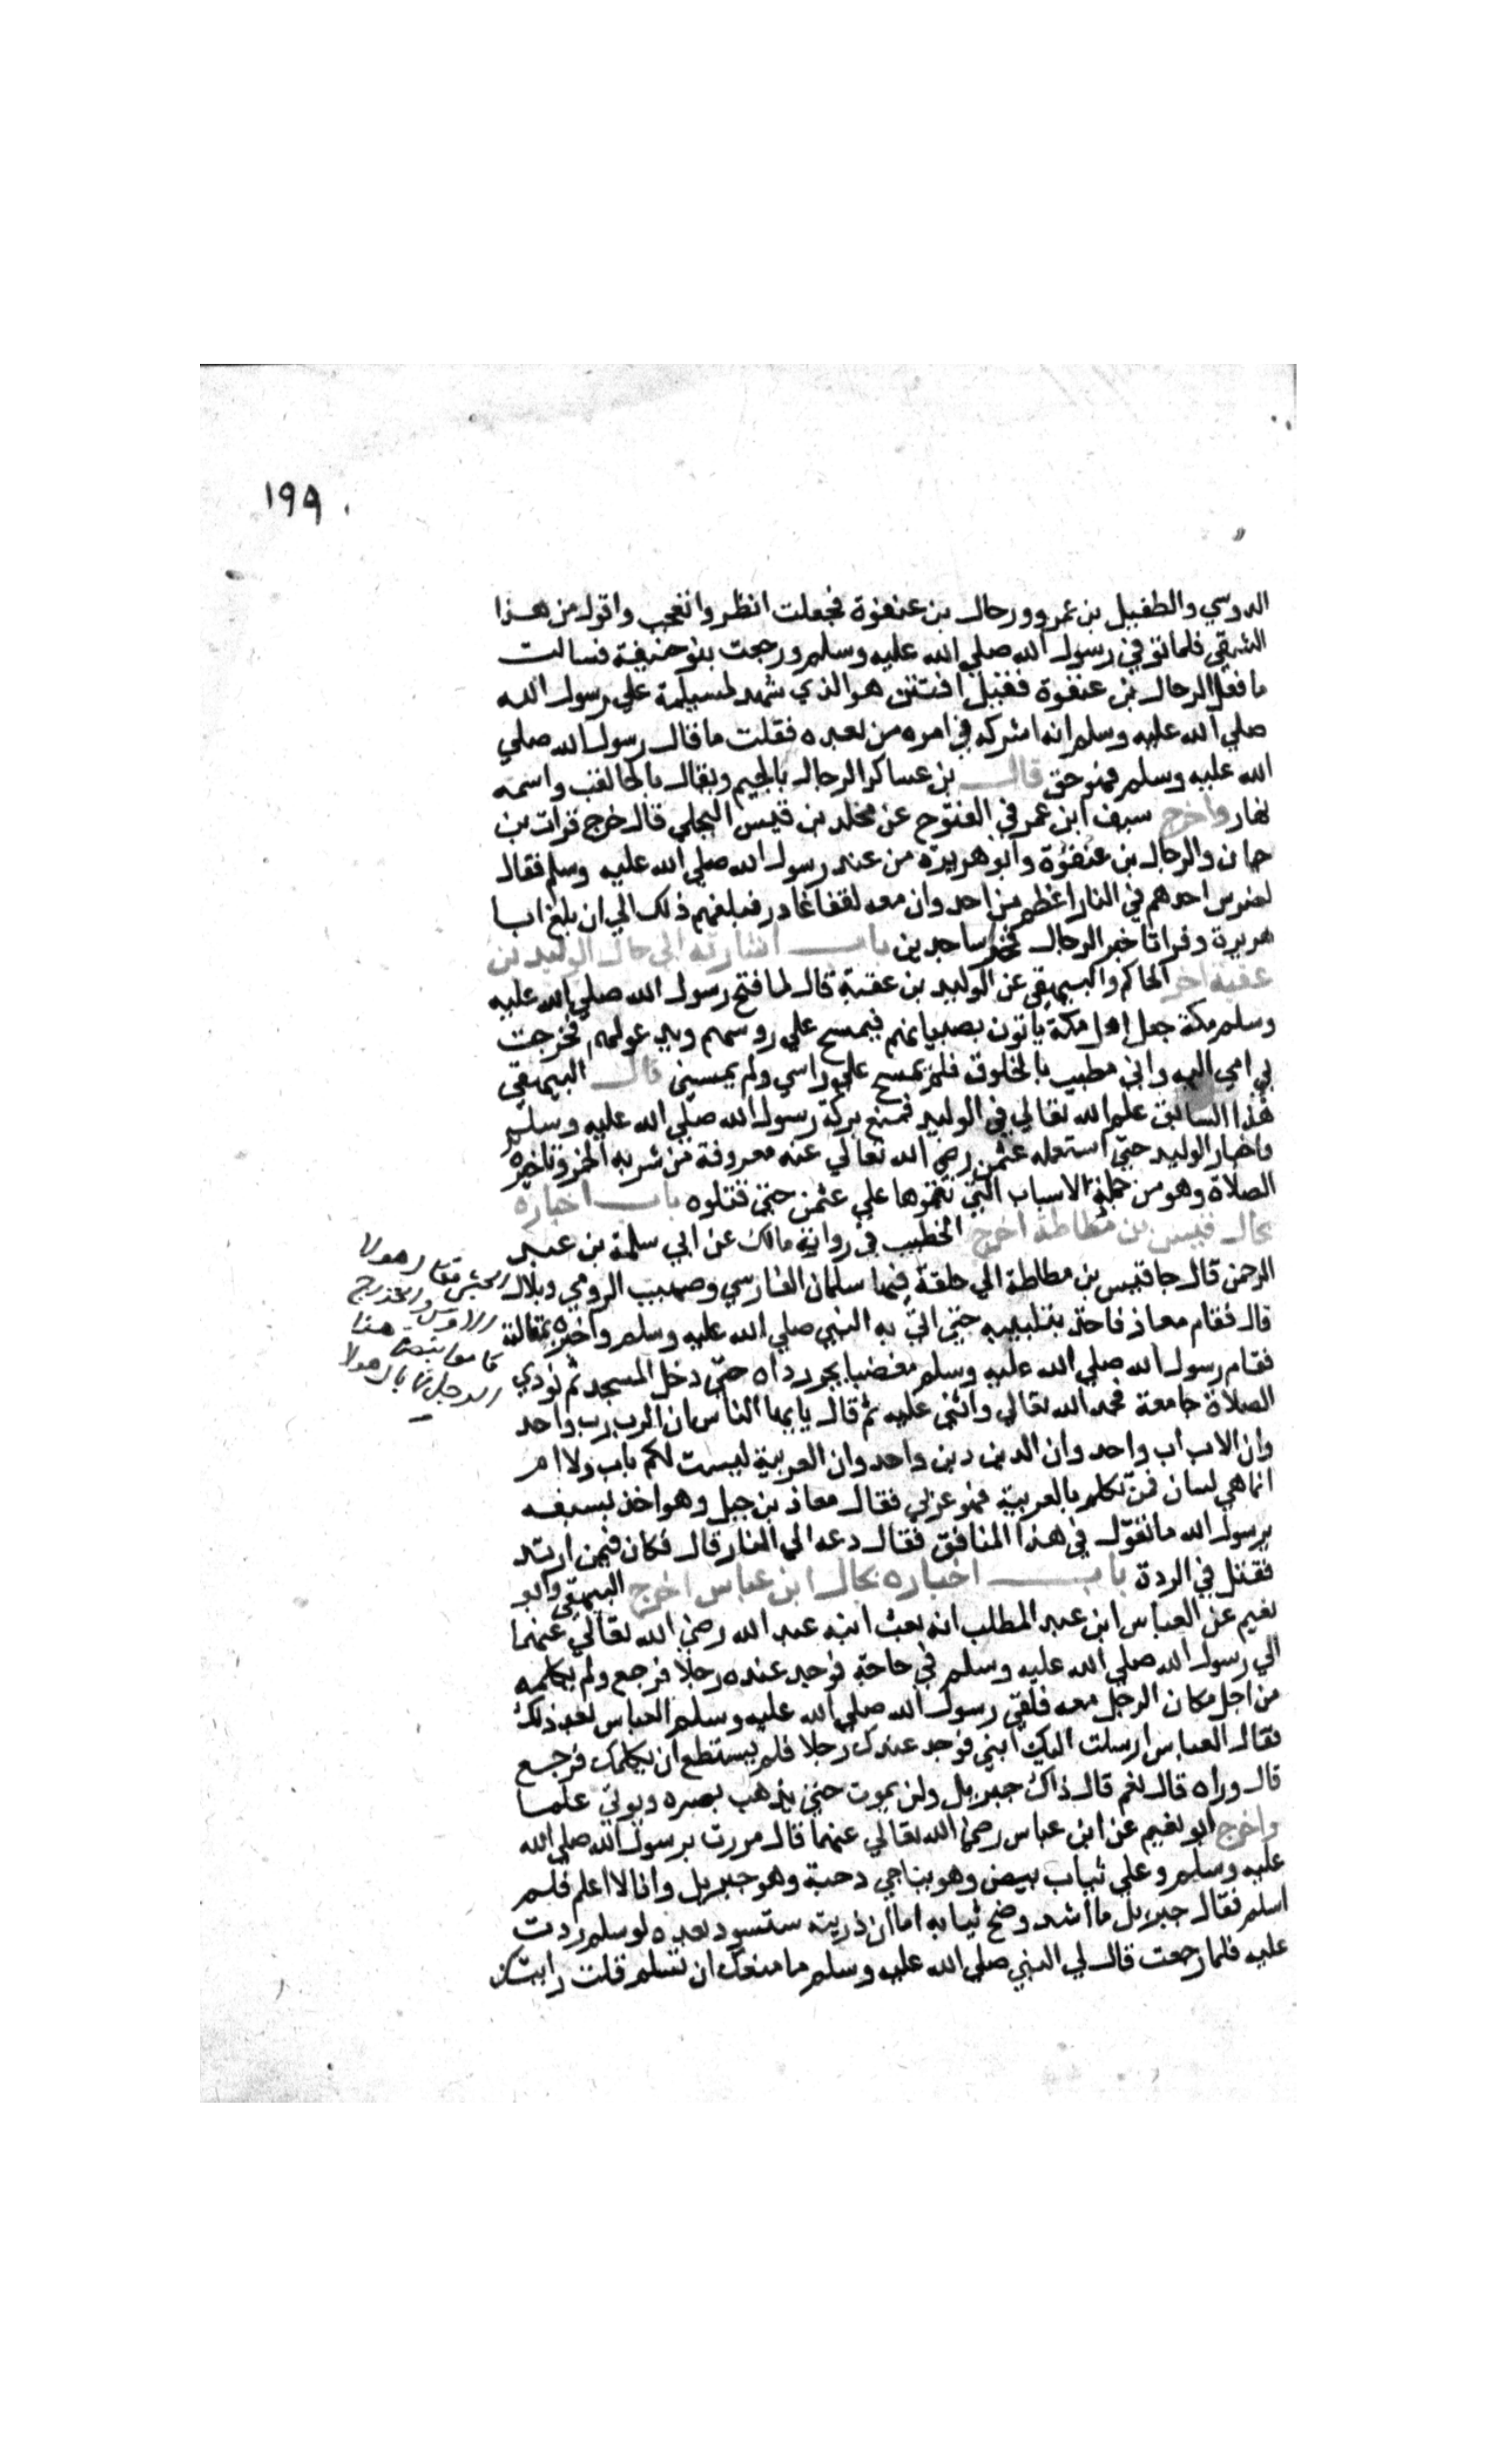 ١٩٩
الدوسي والطفيل بن عمرو ورحال بن عنفوة فجعلت انظر واتعجب واقول من هذا
الشقي فلما توفي رسول الله صلي الله عليه وسلم ورجعت بنو حنيفة فسالت
ما فعل الرحال بن عنفوة فقيل افتتن هو الذي شهد لمسيلمة علي رسول الله
صلي الله عليه وسلم انه اشركه في امره من بعده فقلت ما قال رسول الله صلي
الله عليه وسلم فهو حق قال بن عساكر الرحال بالجيم ويقال بالحا لقب واسمه
نهار واخرج سيف ابن عمر في الفتوح عن مخلد بن قيس البجلي قال خرج فرات بن
حيان والرحال بن عنفوة وابو هريرة من عند رسول الله صلي الله عليه وسلم فقال
لضرس احدهم في النار اعظم من احد وان معه لقفا غادر فبلغهم ذلك الي ان بلغ ابا
هريرة وفراتا خبر الرحال فخرا ساجدين باب اشارته الي حال الوليد بن
عقبة اخرج الحاكم والبيهقي عن الوليد بن عقبة قال لما فتح رسول الله صلي الله عليه
وسلم مكة جعل اهل مكة ياتون بصبيانهم فيمسح علي روسهم ويدعو لهم فخرجت
بي امي اليه واني مطيب بالخلوق فلم يمسح علي راسي ولم يمسني قال البيهقي
هذا السابق علم الله تعالي في الوليد فمنع بركة رسول الله صلي الله عليه وسلم
واخبار الوليد حتي استعمله عثمن رضي الله تعالي عنه معروفة من شربه الخمر وتاخيره
الصلاة وهو من جملة الاسباب التي نقموها علي عثمن حتي قتلوه باب اخباره
بحال قيس بن مطاطة اخرج الخطيب في رواية مالك عن ابي سلمة بن عبد
الرحمن قال جا قيس بن مطاطة الي حلقة فيها سلمان الفارسي وصهيب الرومي وبلال الحبشي فقال هولا
الاوس والخزرج
قاموا بنصرة هذا
الرجل فما بال هولا
قال فقام معاذ فاخذ بتلبيبه حتي اتي به النبي صلي الله عليه وسلم واخبره بمقالته
فقام رسول الله صلي الله عليه وسلم مغضبا يجر رداه حتي دخل المسجد ثم نودي
الصلاة جامعة فحمد الله تعالي واثني عليه ثم قال يايها الناس ان الرب رب واحد
وان الاب اب واحد وان الدين دين واحد وان العربية ليست لكم باب ولا ام
انما هي لسان فمن تكلم بالعربية فهو عربي فقال معاذ بن جبل وهو اخذ بسيفه
يرسول الله ما تقول في هذا المنافق فقال دعه الي النار قال فكان فيمن ارتد
فقتل في الردة باب اخباره بحال ابن عباس اخرج البيهقي وابو
نعيم عن العباس ابن عبد المطلب انه بعث ابنه عبد الله رضي الله تعالي عنهما
الي رسول الله صلي الله عليه وسلم في حاجة فوجد عنده رجلا فرجع ولم يكلمه
من اجل مكان الرجل معه فلقي رسول الله صلي الله عليه وسلم العباس بعد ذلك
فقال العباس ارسلت اليك ابني فوجد عندك رجلا فلم يستطع ان يكلمك فرجع
قال وراه قال نعم قال ذاك جبريل ولن يموت حتي يذهب بصره ويوتي علما
واخرج ابو نعيم عن ابن عباس رضي الله تعالي عنهما قال مررت برسول الله صلي الله
عليه وسلم وعلي ثياب بيض وهو يناجي دحية وهو جبريل وانا لا اعلم فلم
اسلم فقال جبريل ما اشد وضح ثيابه اما ان ذريته ستسود بعده لو سلم رددت
عليه فلما رجعت قال لي النبي صلي الله عليه وسلم ما منعك ان تسلم قلت رايتك